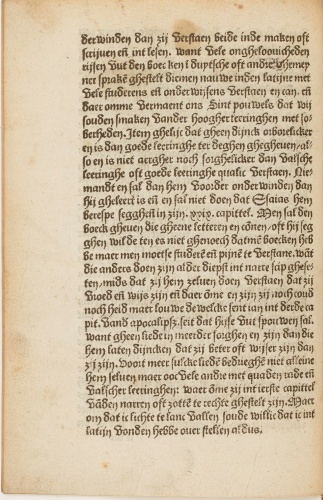 derwinden dan zij Verstaen beide inde maken oft
scrijuen eñ int lesen. want Vele ongheloouicheden
rijsen Vut den boecken i duytsche oft andre ghemey
ner sprakē ghestelt diemen nauwe inden latijne met
Vele studerens eñ onderwijsens Verstaen en can. eñ
daer omme Vermaent ons Sint pouwels dat wij
souden smaken Vander hoogher leeringhen met so-
berheden. Item ghelijc dat gheen dijnck orborelicker
en is dan goede leeringhe ter deghen ghegheuen/ al-
so en is niet aergher noch sorghelicker dan Valsche
leeringhe oft goede leeringhe qualic Verstaen. Nie-
mandt en sal dan hem Voorder onderwinden dan
hij gheleert is eñ en sal niet doen dat Esaias hem
berespe segghēn in zijn. xxix. capittel. Men sal den
boeck gheuen die gheene letteren en cōnen/ oft hij seg
ghen wilde ten es niet ghenoech datmē boecken heb
be maer men moetse studerē eñ pijnē te Verstane. wāt
die anders doen zijn al der diepst int narre scip ghese-
ten/ mids dat zij hem zeluen doen Verstaen dat zij
Vroed eñ wijs zijn eñ daer ōme en zijn zij noch coud
noch heid maer lou we de welcke sent ian int derde ca
pit. Vand apocalipsz. seit dat hijse Vut spouwen sal.
want gheen liede in meerder sorghen en zijn dan die
hem laten dijncken dat zij beter oft wijser zijn dan
zij zijn. Vooit meer sulcke liedē bedrieghē niet alleine
hem seluen maer ooc Vele andre met quaden rade eñ
Valscher leeringhen: waer ōme zij int ierste capittel
Vādē narren oft zottē te rechte ghestelt zijn. Maer
om dat ic lichte te lanc Vallen soude willic dat ic int
latijn Vonden hebbe ouer stellen aldus.